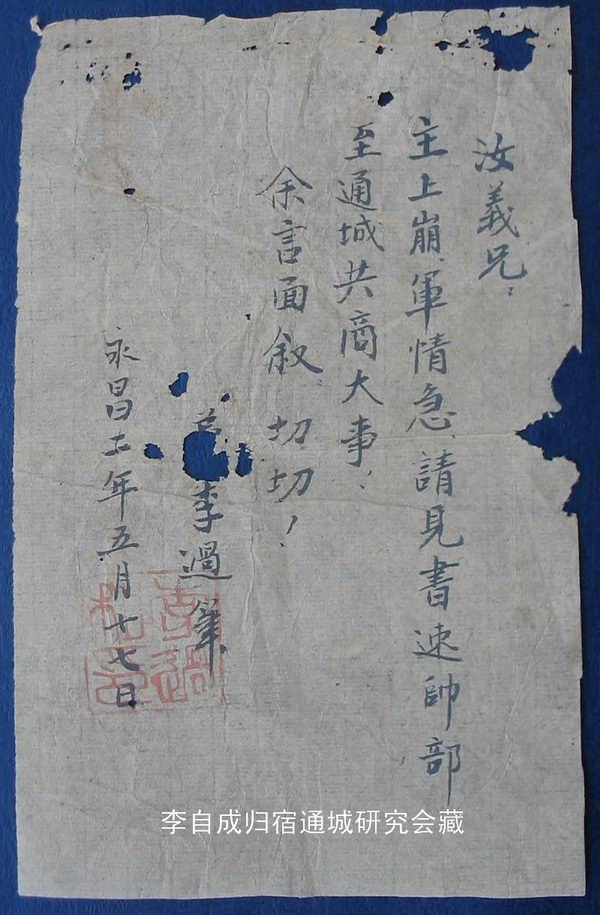 汝義兄：
主上崩、軍情急、請見書速帥部
至通城共商大事、
余言面敘 切切！
李過筆
永昌二年五月十七日
李自成归宿通城研究会藏